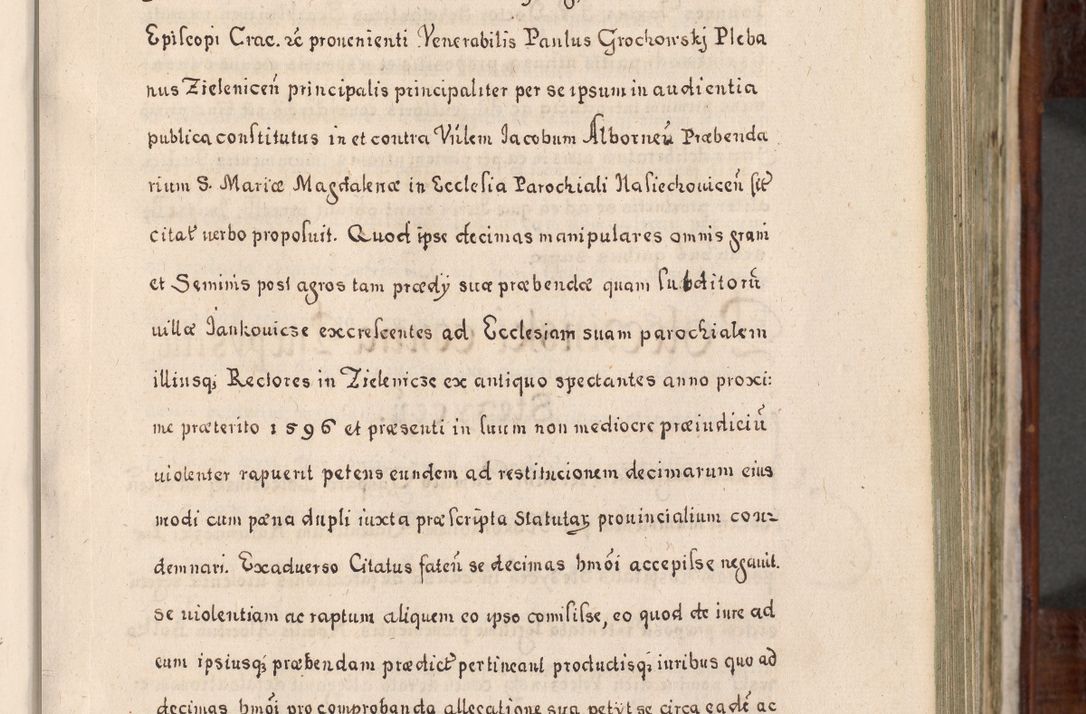 Episcopi Crac. ꝛc̃ prouenienti Venerabilis Paulus Grochowskj Pleba
nus Zielenicen̄ principalis principaliter per se ipsum in audientia
publica constitutus in et contra Vñlem Jacobum Alborneū Præbenda
rium S. Mariæ Magdalenæ in Ecclesia Parochiali Nasiechouicen̄
citat̃ uerbo proposuit. Quod ipse decimas manipulares omnis grani
et Seminis post agros tam prædÿ suæ præbendæ quam subditorū
uillæ Jankouicze excrescentes ad Ecclesiam suam parochialem
illiusq̧ Rectores in Zielenicze ex antiquo spectantes anno proxi:
me præterito 1596 et præsenti in suum non mediocre præiudiciū
uiolenter rapuerit petens eundem ad restitucionem decimarum eius
modi cum pæna dupli iuxta præscripta Statutaꝝ prouincialium con⸗
demnari. Exaduerso Citatus faten̄ se decimas hm̄oi accepisse negauit.
se uiolentiam ac raptum aliquem eo ipso comisisse, eo quod de iure ad
eum ipsiusq̧ præbendam prædict̃ pertineant productisq̧ iuribus quo ad
decimas hm̄oi pro comprobanda allegatione sua petÿt se circa eadē ac